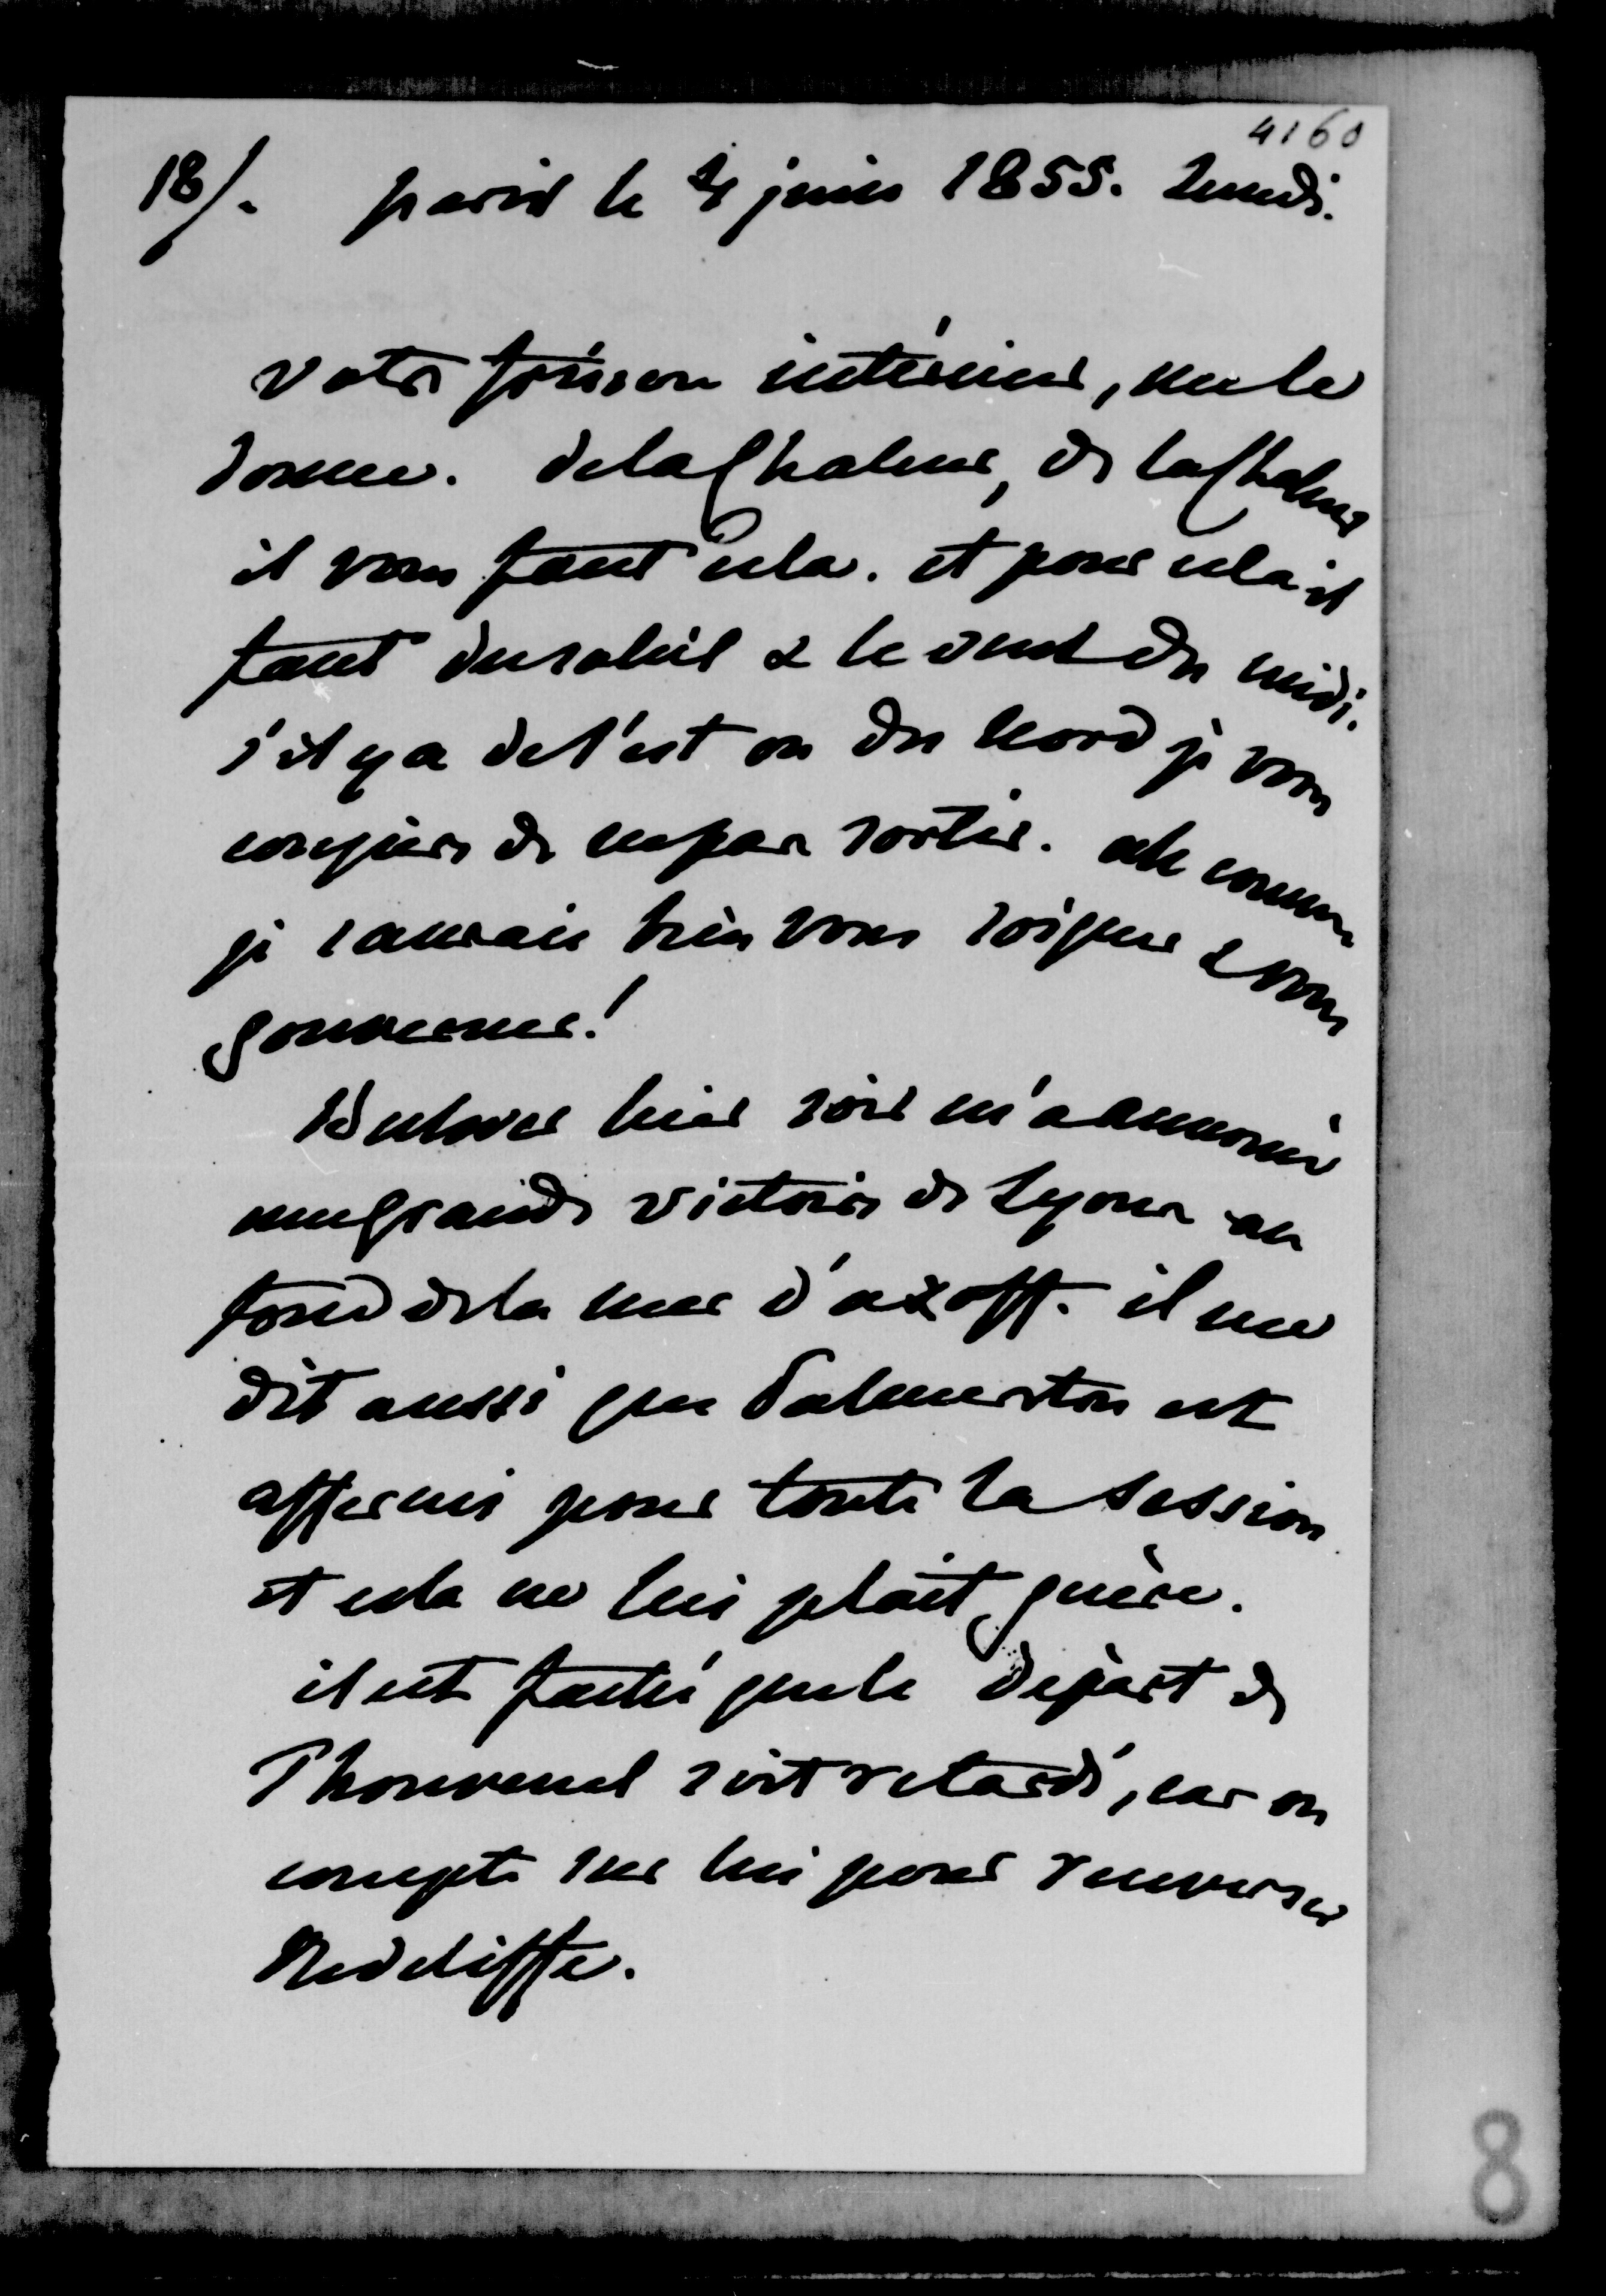 4160
18/. paris le 4 juin 1855. Lundi.
votre frisson intérieur, me le
donne. de la Chaleur, de la Chaleur
il vous faut cela. et pour cela il
faut du soleil & le vent du midi.
s'il y a de l'est ou du Nord je vous
conjure de ne pas sortir. ah comme
je saurais bien vous soigner & vous
gouverner!
Bulwer hier soir m'a annoncé
une grande victoire de Lyons au
fond de la mer d'azoff. il me
dit aussi que Palmerston est
affermi pour toute la session
et cela ne lui plait guère.
il est faché que le départ de
Thouvenel soit retardé, car on
compte sur lui pour renverser
Redcliffe.
8